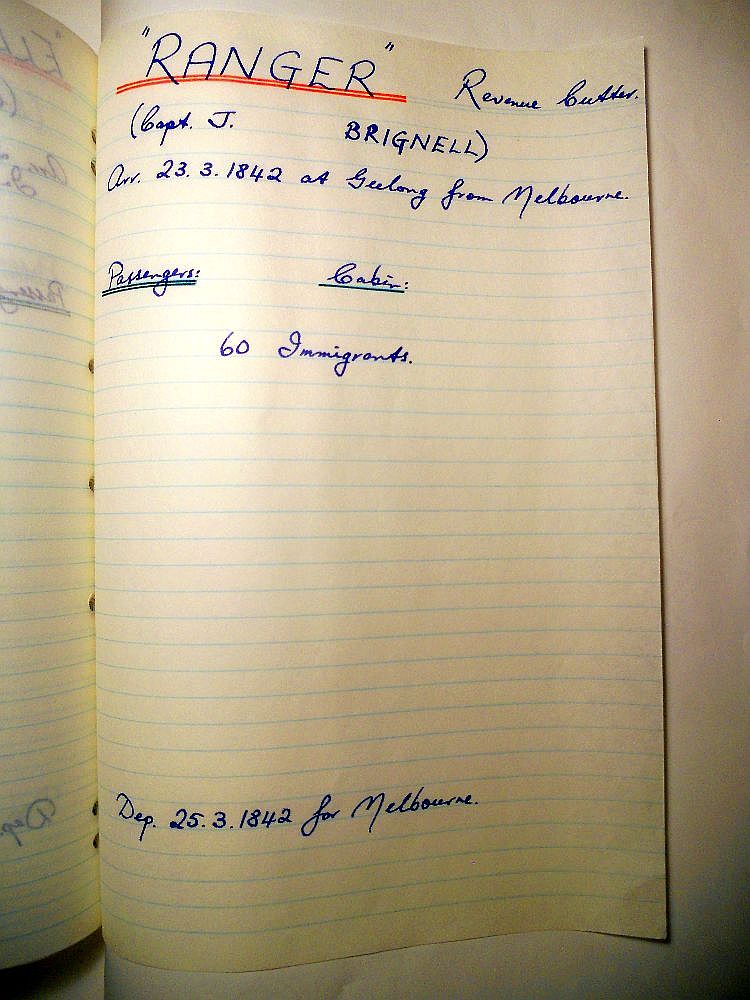 "RANGER" Revenue Cutter.
(Capt. J. BRIGNELL)
Arr. 23.3.1842 at Geelong from Melbourne.
Passengers: Cabin:
60 Immigrants.
Dep. 25.3.1842 for Melbourne.